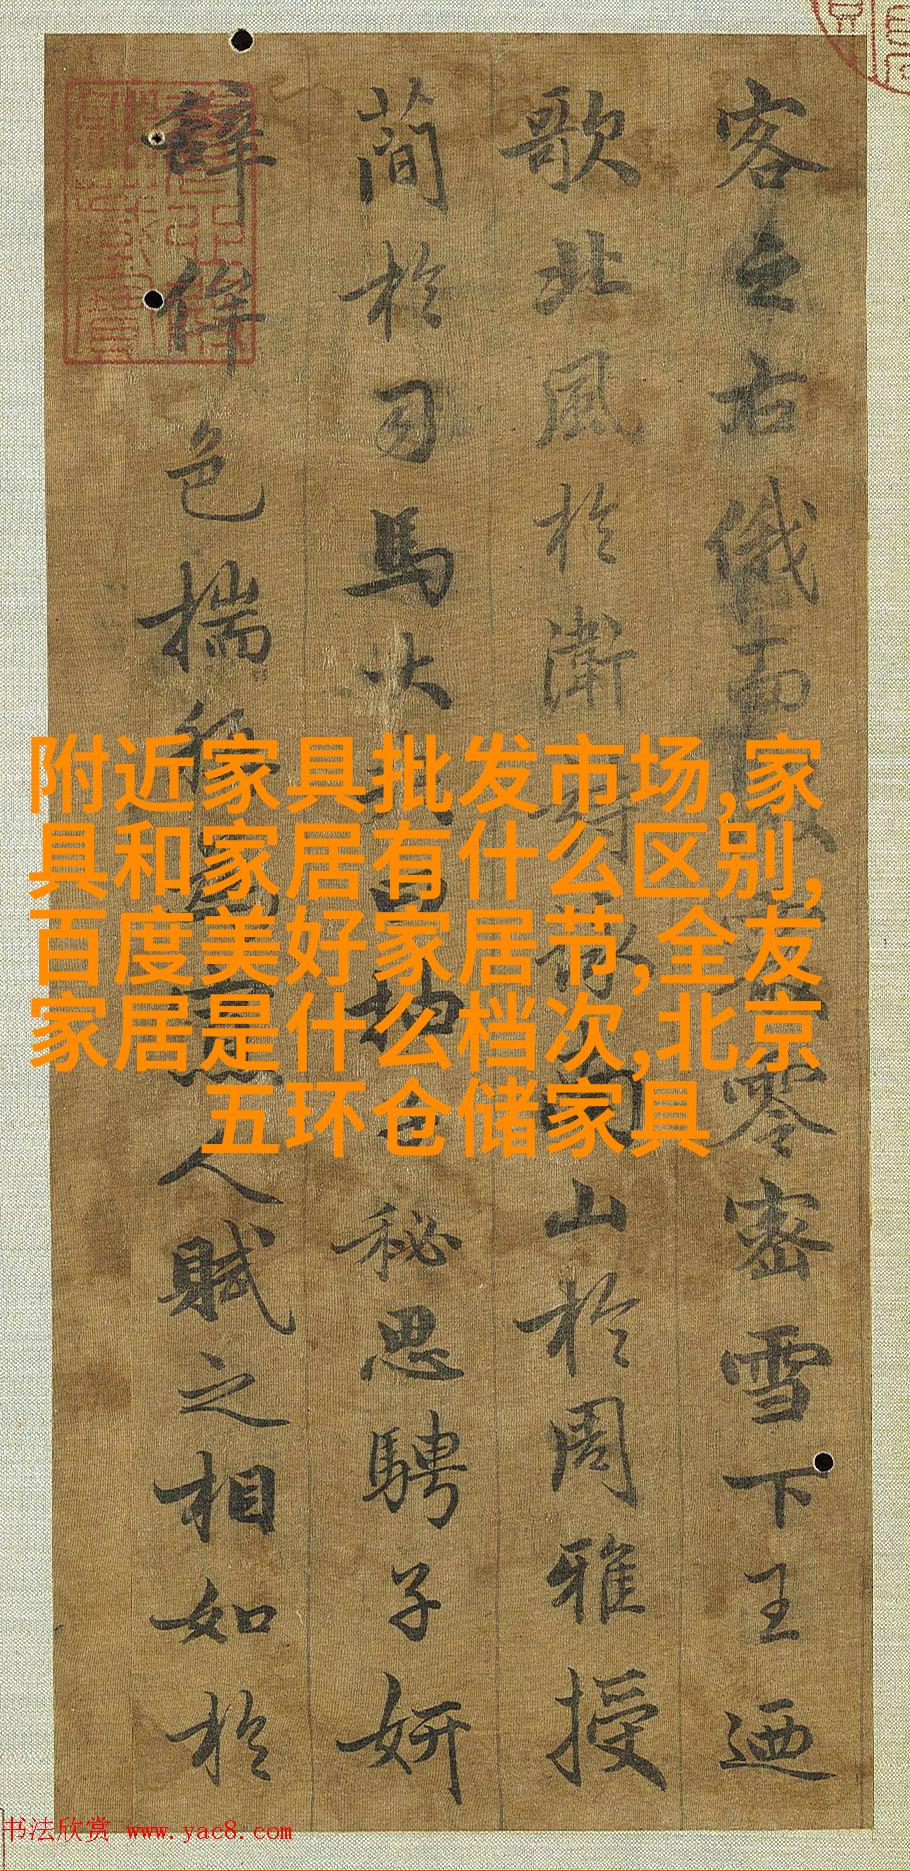 客之右俄而零密雪下王迺
歌北風於衛詩詠山於周雅授
簡於司馬大曰抽秘思騁子妍
辭侔色揣稱人賦之相如於
附近家具批发市场,家
具和家居有什么区别,
百度美好家居节,全友
家居是什么档次,北京
五环仓储家具
书法欣赏 www.yac8.com